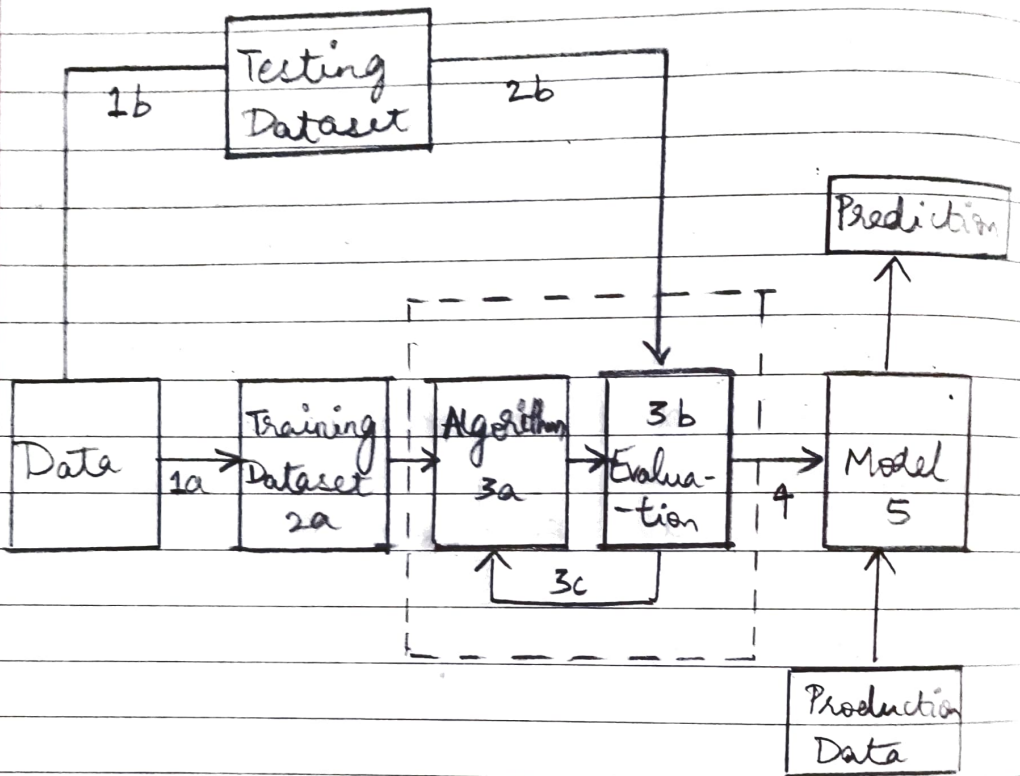 Testing
Dataset
1b
2b
Prediction
Data
1a
Training
Dataset
2a
Algorithm
3a
3b
Evalua-
-tion
3c
4
Model
5
Production
Data